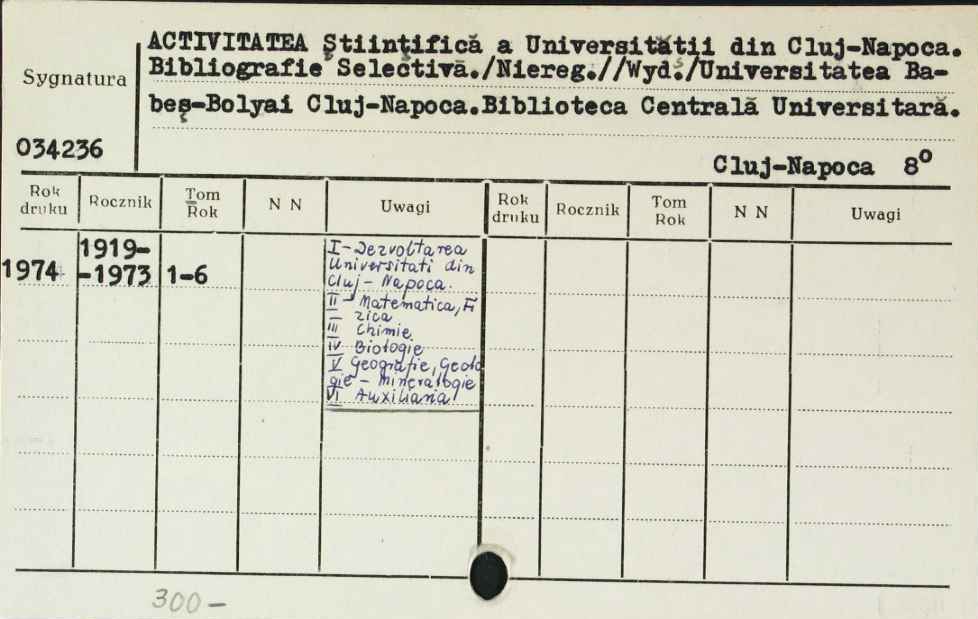 ACTIVITATEA Ştiinţifică a Universitătii din Cluj-Napoca.
Bibliografie Selectivă./Niereg.//Wyd./Universitatea Ba-
beş-Bolyai Cluj-Napoca.Biblioteca Centrală Universitară.
Cluj-Napoca 8°
Sygnatura
034236
Rok druku Rocznik Tom Rok N N Uwagi Rok druku Rocznik Tom Rok N N Uwagi
1974 1919-
-1973 1-6
I-Dezvoltarea
Universitati din
Cluj-Napoca.
II-Matematica, Fi
zica
III Chimie
IV Biologie
V Geografie, Geolo
gie-Mineralogie
VI Auxiliaria
300-